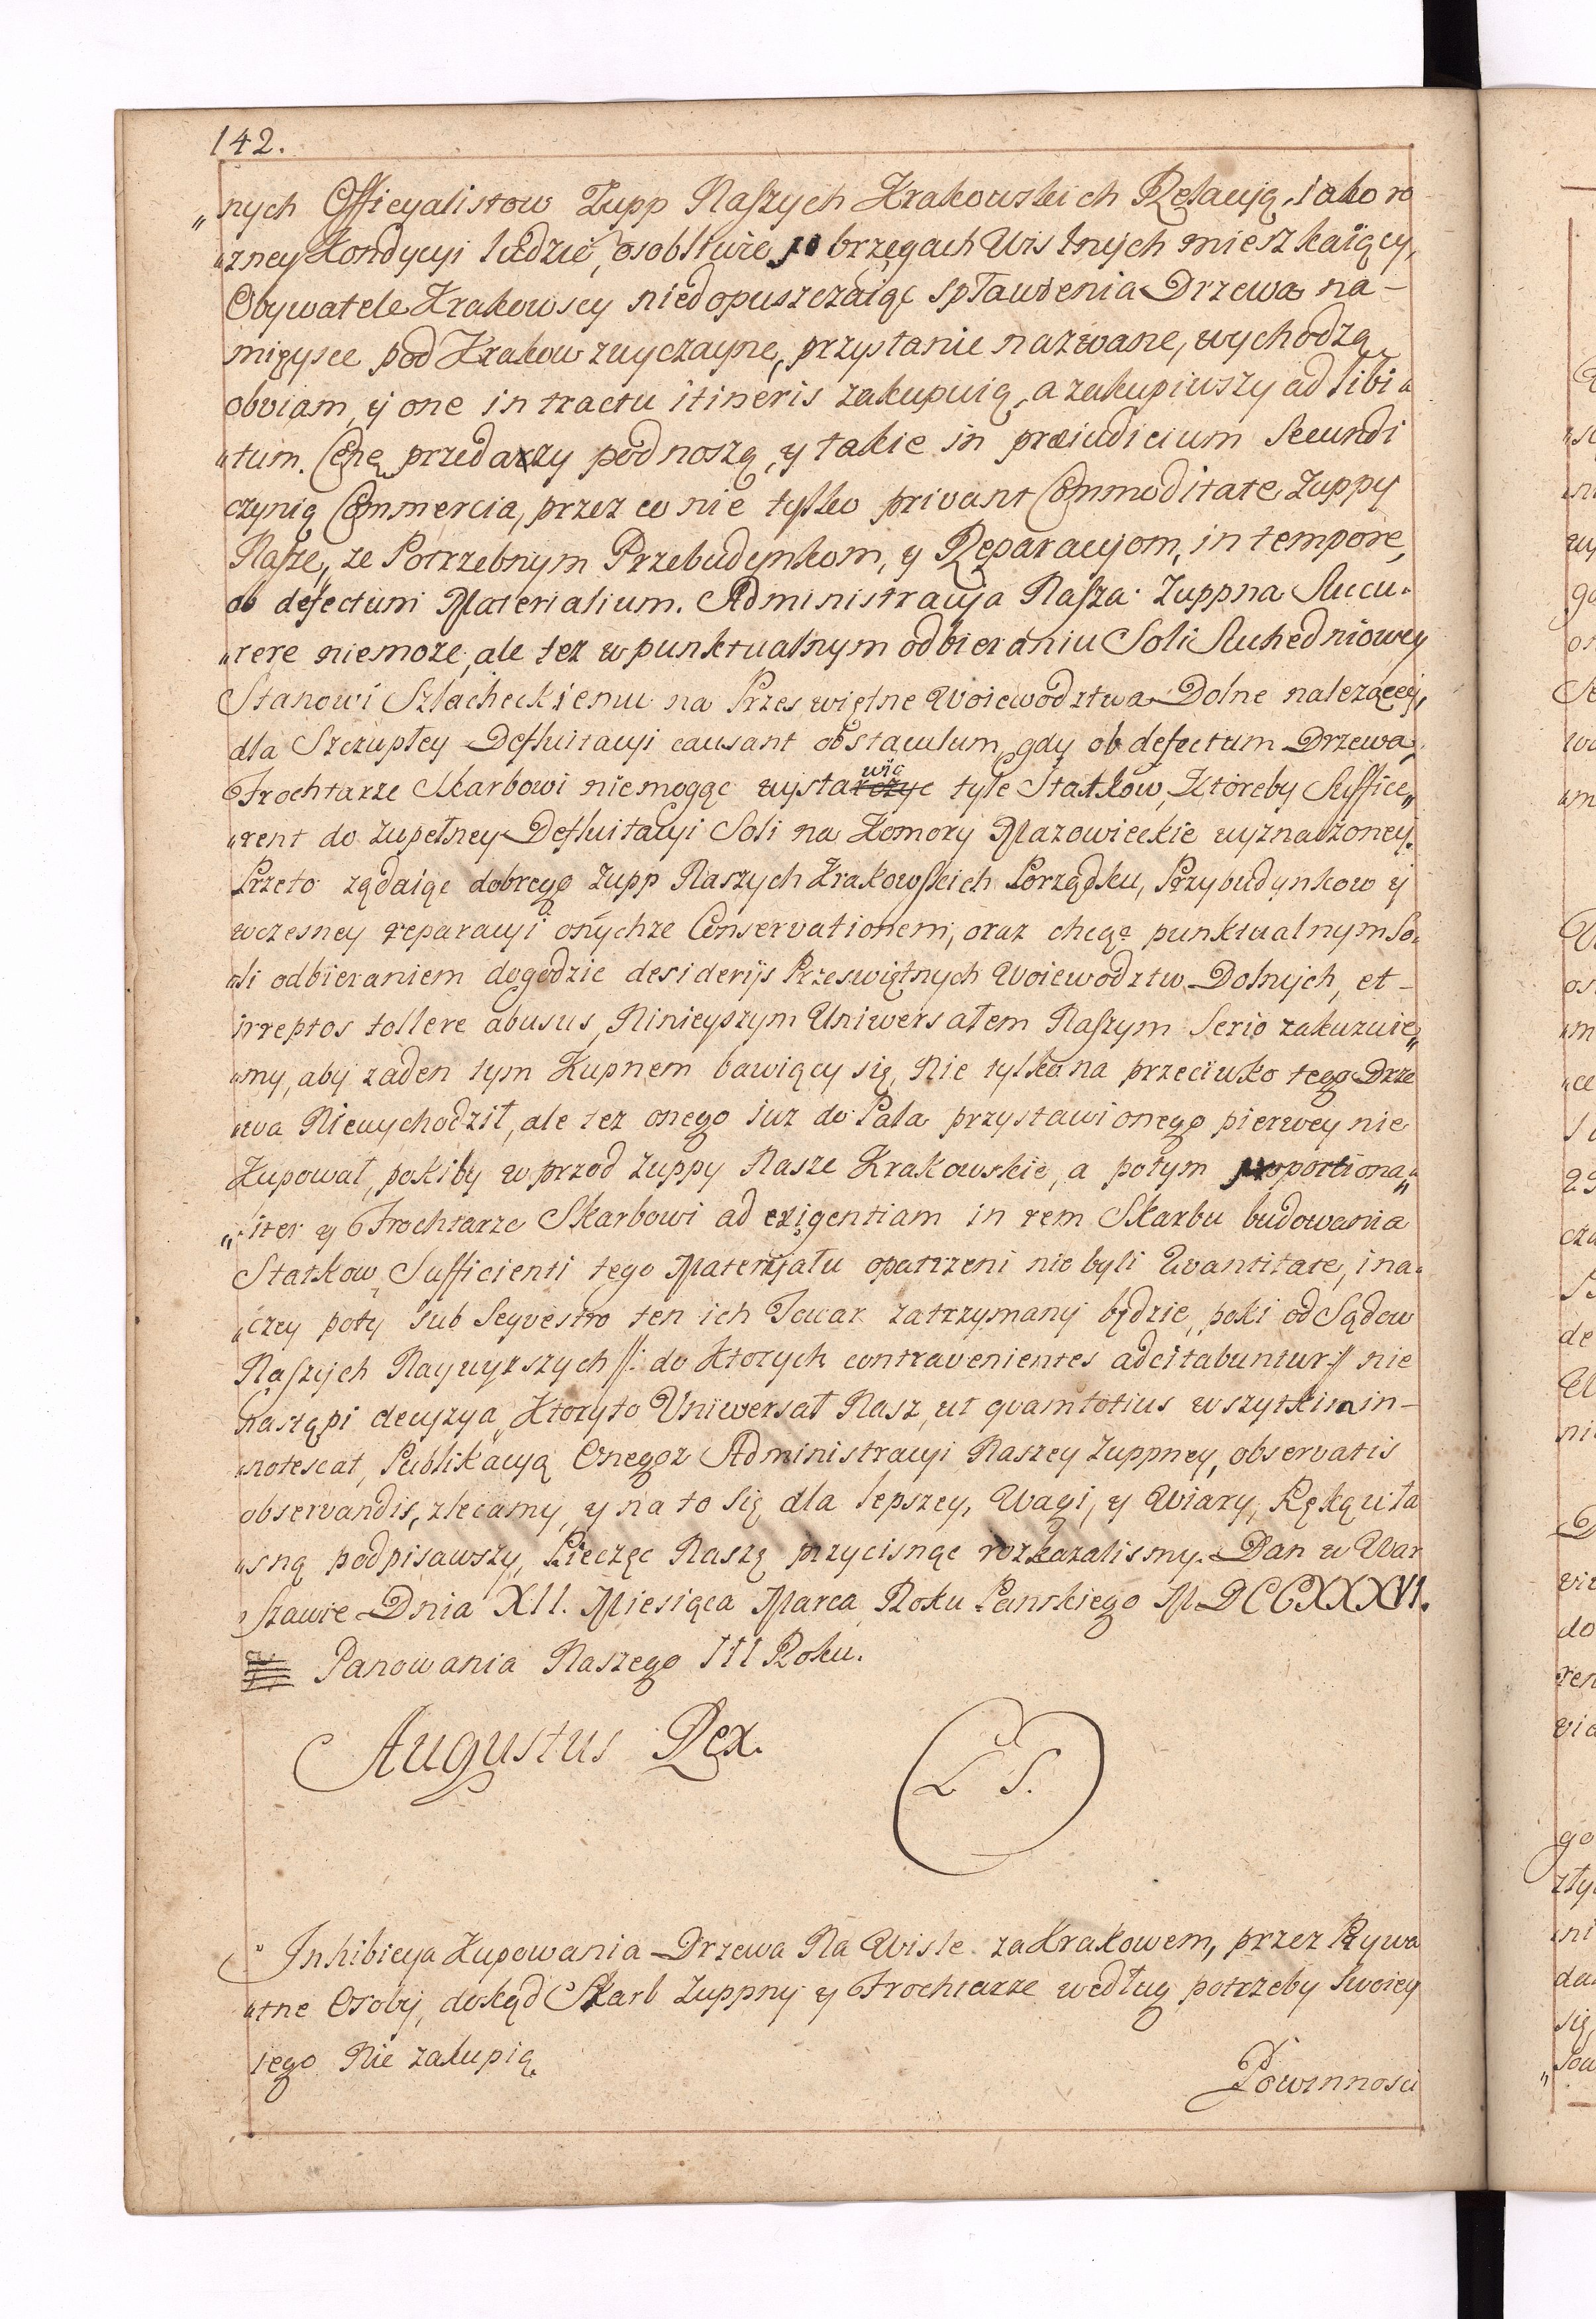 142.
„nych Officyalistow Zupp Naszych Krakowskich Relacyią, iako ro
„zney Kondycyi ludzie, osobliwie po brzegach Wislnych mieszkaiący,
Obywatele Krakowscy niedopuszczaiąc spławienia Drzewa na-
mieysce pod Krakow zwyczayne, przystanie nazwane, wychodzą
obviam, y one in tractu itineris zakupuią, a zakupiwszy ad libi„
„tum. Cenę przedarzy podnoszą, y takie in præiudicium Secundi
czynią Commercia, przez co nie tylko privant Commoditate Zuppy
Nasze, ze Potrzebnym Przebudynkom, y Reparacyjom, in tempore,
ob defectum Materialium. Administracyja Nasza Zuppna Succu„
„rere niemoze, ale tez w punktualnym odbieraniu Soli Suchedniowey
Stanowi Szlacheckiemu na Przeswiętne Woiewodztwa Dolne nalezącey,
dla Szczupłey Defluitacyi causant obstaculum, gdy ob defectum Drzewa,
Frochtarze Skarbowi niemogąc wystarczyc wic tyle Statkow, Ktoreby Suffice„
„rent do zupełney Defluitacyi Soli na Komory Mazowieckie wyznaczoney.
Przeto ządaiąc dobrego Zupp Naszych Krakowskich Porządku, Przybudynkow y
wczesney reparacyi onychze Conservationem, oraz chcąc punktualnym So„
„li odbieraniem dogodzic desiderijs Przeswiętnych Woiewodztw Dolnych, et-
irreptos tollere abusus, Ninieyszym Uniwersałem Naszym Serio zakazuie„
„my, aby zaden tym Kupnem bawiący się, Nie tylko na przeciwko tego Drze
„wa Niewychodził, ale tez onego iuz do Pala przystawionego pierwey nie
Kupował, pokiby w przod Zuppy Nasze Krakowskie, a potym proportiona„
„liter y Frochtarze Skarbowi ad exigentiam in rem Skarbu budowania
Statkow, Sufficienti tego Materyjału opatrzeni nie byli Qvantitate, ina„
„czey poty sub Seqvestro ten ich Towar zatrzymany będzie, poki od Sądow
Naszych Naywyzszych /: do Ktorych contravenientes adcitabuntur :/ nie
nastąpi decyzya, Ktoryto Uniwersał Nasz, ut qvam totius wszytkim in-
„notescat, Publikacyą Onegoz Administracyi Naszey Zuppney, observatis
observandis, zlecamy, y na to Się dla lepszey, Wagi, y Wiary, Ręką wła
„sną podpisawszy, Pieczęc Naszą przycisnąc rozkazalismy. Dan w War
„szawie Dnia XII. Miesiąca Marca Roku Panskiego M.DCCXXXVI.
Panowania Naszego III Roku.
Augustus Rex.
L S.
Inhibicya Kupowania Drzewa Na Wisle za Krakowem, przez Prywa
„tne Osoby, dokąd Skarb Zuppny y Frochtarze według potrzeby Swoiey
tego Nie zakupią.
Powinnosci